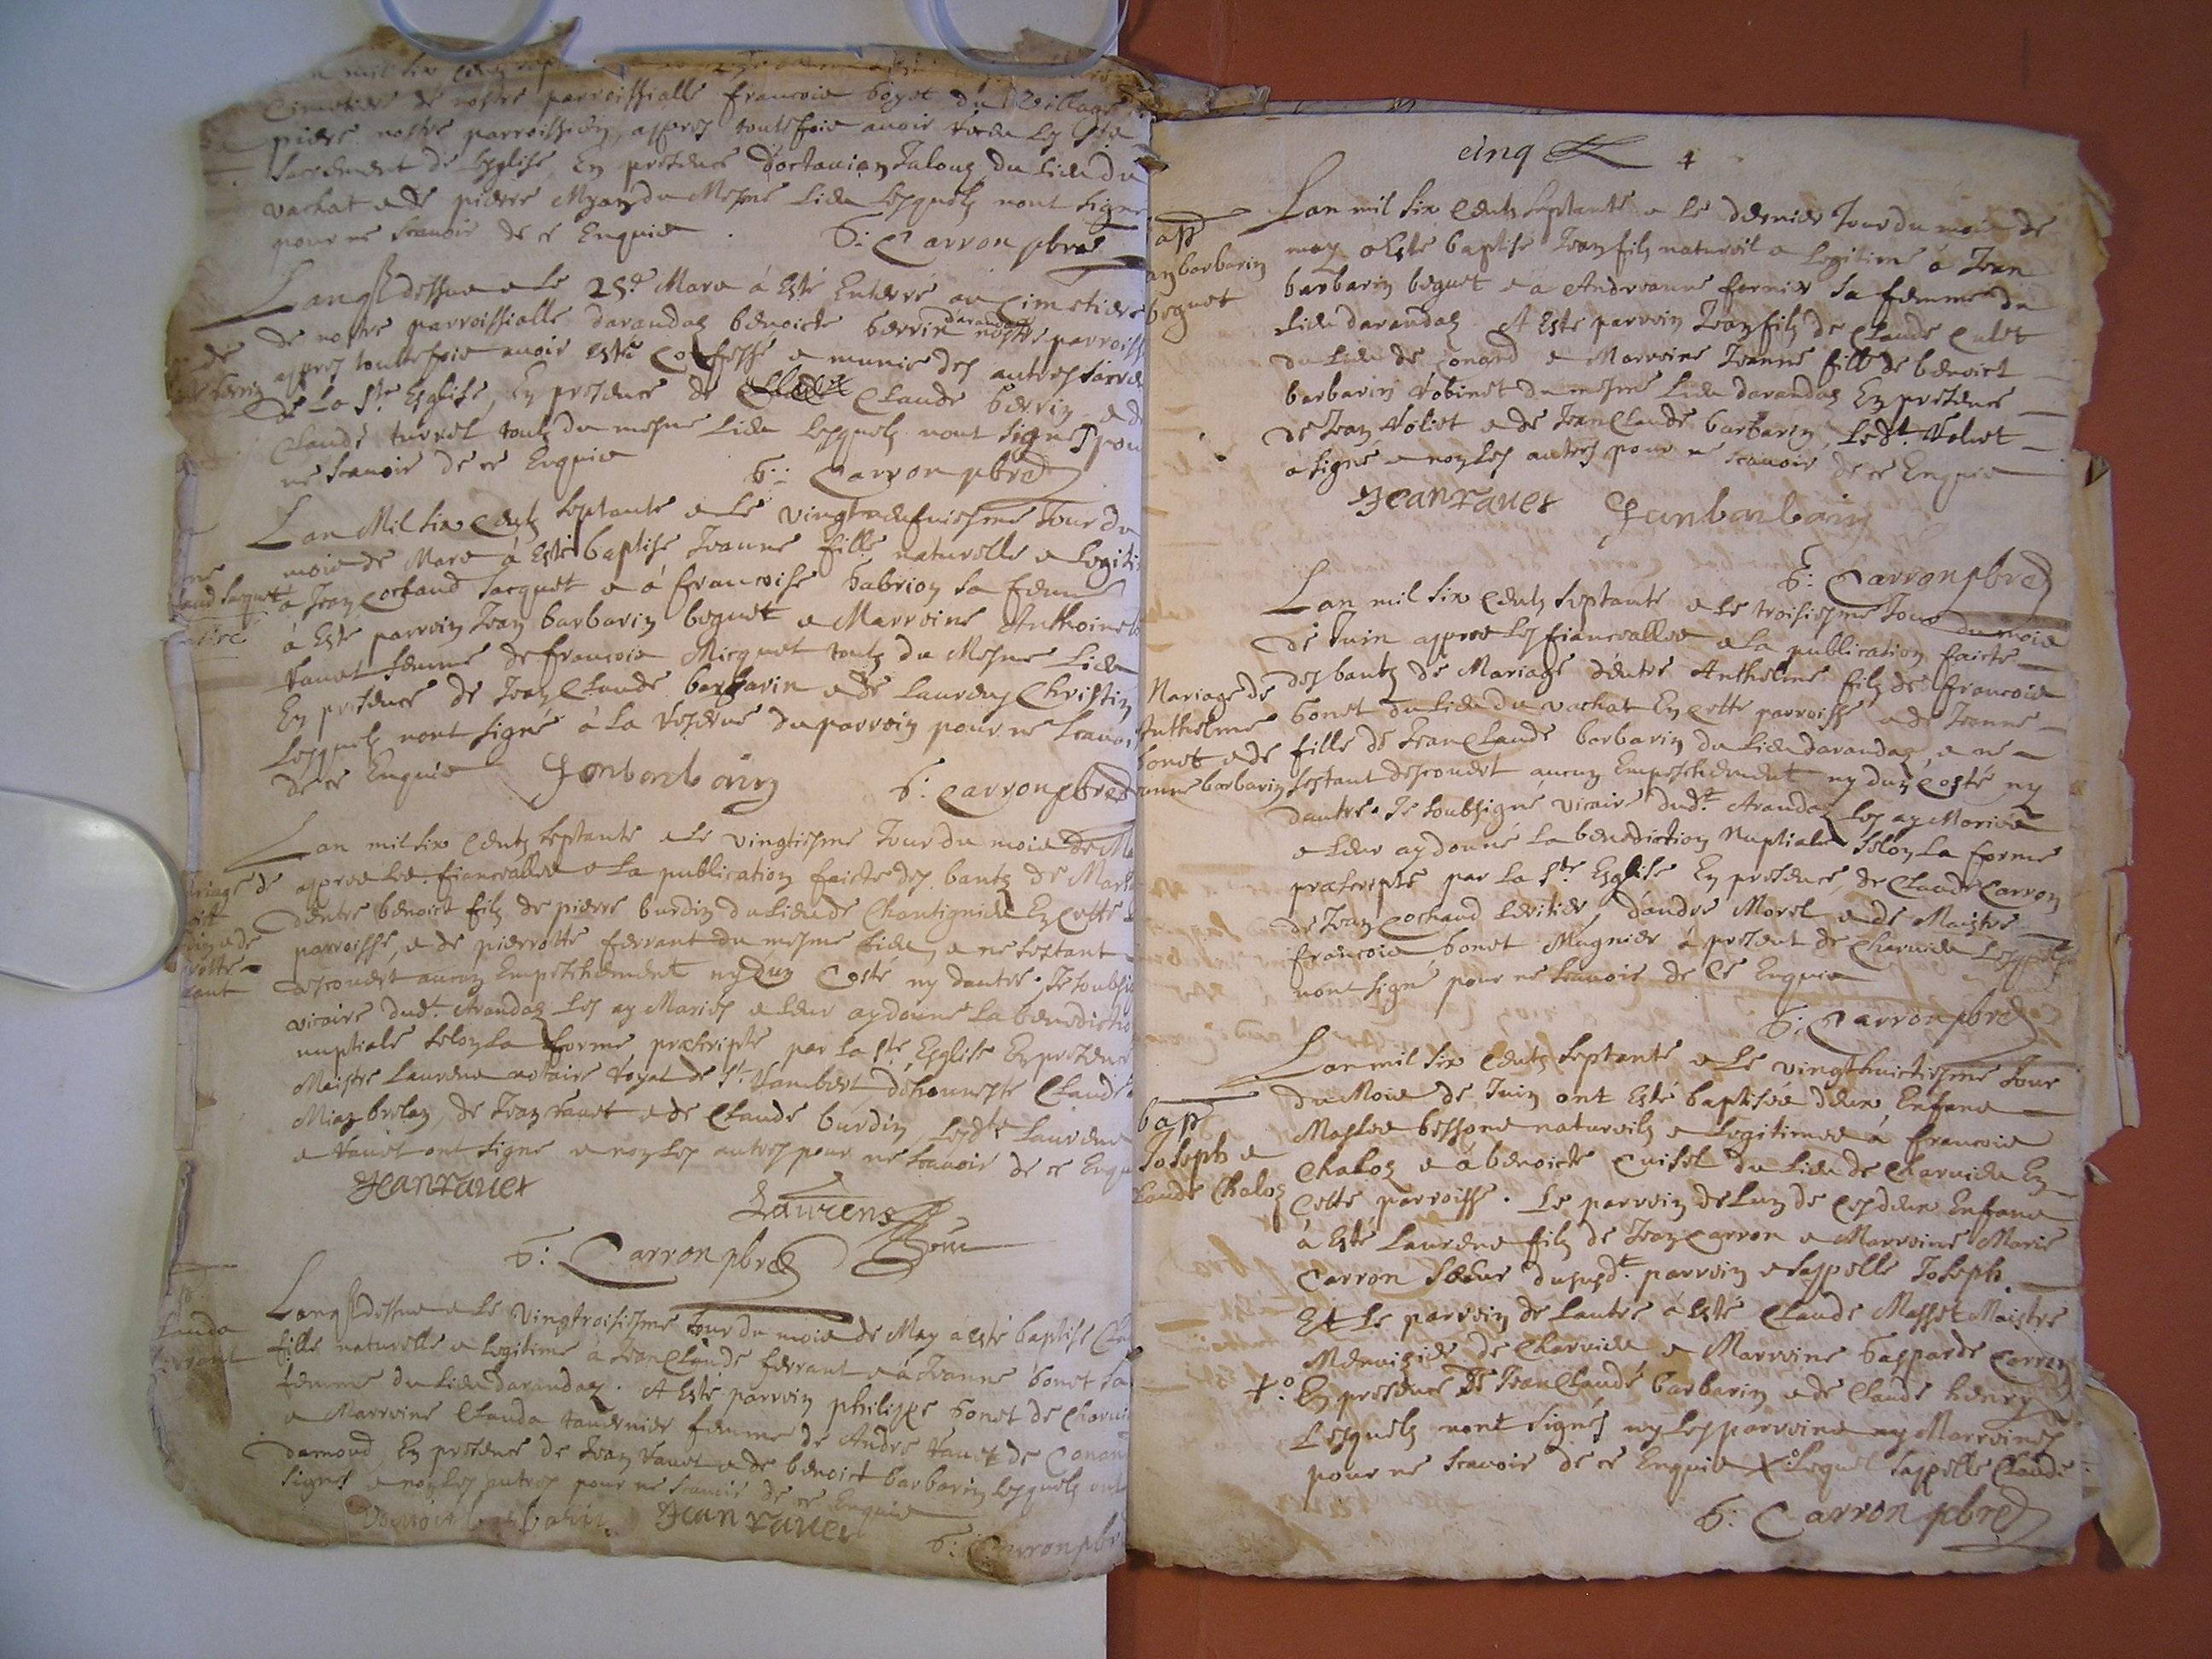 mil six centz
Cimetiere de nostre parroissialle francois bozet du village
pierre nostre parroissien, appres toutesfois avoir receu les Ste
sacrement de lesglise En presence doctavian Jaloux du lieu du
vachat e de pierre Myan du Mesme lieu lesquels nont signe
pour ne scavoir de ce Enquis. G: Carron pbre
Lan q. dessus e le 25e Mars á esté Enterré au Cimetiere
de nostre parroissialle darandaz benoicte berrin darandaz nostre parroiss
appres toutesfois avoir estée Confessé e munie des autres sacre
de la Ste Esglise, En presence de Claude berrin e de
Claude turrel toutz du mesme lieu lesquels nont signes pour
ne scavoir de ce Enquis G: Carron pbre
Lan Mil six Centz septante e le vingtneufuiesme Jour du
mois de Mars á esté baptise Jeanne fille naturelle e legiti
á Jean Cochand Jacquet e á francoise Gabrion sa femme
á esté parrein Jean barbarin beguet e Marreine Anthoinet
ravet femme de francois Micquet toutz du Mesme lieu
En presence de Jean Claude barbarin e de Laurens Christin
lesquels nont signé á la reserve du parrein pour ne scavoi
de ce Enquis Jan barbarin G: Carron pbre
Lan mil six Centz septante e le vingtiesme Jour du mois de M
appres les fiancealles e la publication faicte des bantz de Mari
dentre benoict filz de pierre burdin du lieu de Chantignieu En cette
parroisse, e de pierrotte ferrant du mesme lieu, e ne sestant
descouvert aucun Empeschement ny dun Costé ny dautre. Je soubsig
vicaire dudt. Arandaz les ay Mariés e leur ay donné la benedictio
nuptiale selon la forme prescripte par la Ste Esglise En presence
Maistre Laurens notaire royal de St. Rambert dhonneste Claude
Mian brelaz, de Jean ravet e de Claude burdin, lesdts Laurens
e Ravet ont signé e non les autres pour ne scavoir de ce Enqu
Jean raver Laurens
G: Carron pbre
Lan q. dessus e le vingtroisiesme Jour du mois de May a esté baptise Cla
fille naturelle e legitime á Jean Claude ferrant e á Jeanne bonet sa
femme du lieu darandaz. A Esté parrein philippe bonet de Charvi
e Marreine Clauda tavernier femme de Andre ravet de Conan
damond, En presence de Jean Ravet e de benoict barbarin lesquels ont
signes e non les autres pour ne scavoir de ce Enquis
Benoict barbarin Jean raver G: Carron pbr
cinq 4
bap
an barbarin
beguet
Lan mil six Centz septante e le dernier Jour du mois de
may á Esté baptisé Jean filz naturel e legitime á Jean
barbarin beguet e á Andreanne fornier sa femme du
lieu darandaz. A Esté parrein Jean filz de Claude Culet
du lieu de Conand e Marreine Jeanne fille de benoict
barbarin robinet du mesme lieu darandaz En presence
de Jean Ravet e de Jean Claude barbarin, Ledt. Ravet
a signé e non les autres pour ne scavoir de ce Enquis
Jean raver Jan barbarin
G: Carron pbre
Lan mil six Centz septante e le troisiesme Jour du mois
de Juin appres les fiancealles e la publication faicte
Mariage de
Anthelme
bonet e de
anne barbarin
des bantz de Mariage dentre Anthelme filz de francois
bonet du lieu du vachat En cette parroisse e de Jeanne
fille de Jean Claude barbarin du lieu darandaz, e ne
sestant descouvert aucun Empeschement ny dun Costé ny
dautre. Je soubsigné vicaire dudt. Arandaz les ay Mariés
e leur ay donné la benediction Nuptiale selon la forme
præscripte par la Ste Esglise En presence, de Claude Carron
de Jean Cochand leritier, dandré Morel e de Maistre
francois bonet Mugnier á present de Charvieu lesquels
nont signé pour ne scavoir de ce Enquis
G: Carron pbre
Lan mil six Centz septante e le vingthuictiesme Jour
du Mois de Juin ont Esté baptisés deux Enfans
bap
Joseph e
Claude Chaloz
Masles bessons naturels e legitimes á francois
Chaloz e á benoicte Cuisel du lieu de Charvieu En
Cette parroisse. Le parrein de lun de Cesdeux Enfans
á Esté Laurens filz de Jean Carron e Marreine Marie
Carron Sœur dususdt. parrein e sappelle Joseph
Et le parrein de lautre á Esté Claude Masset Maistre
Menuizier de Charvieu e Marreine Gasparde Carron
En presence de Jean Claude barbarin e de Claude henry
Lesquels nont signés ny les parreins ny Marreines
pour ne scavoir de ce Enquis Lequel sappelle Claude
G: Carron pbre